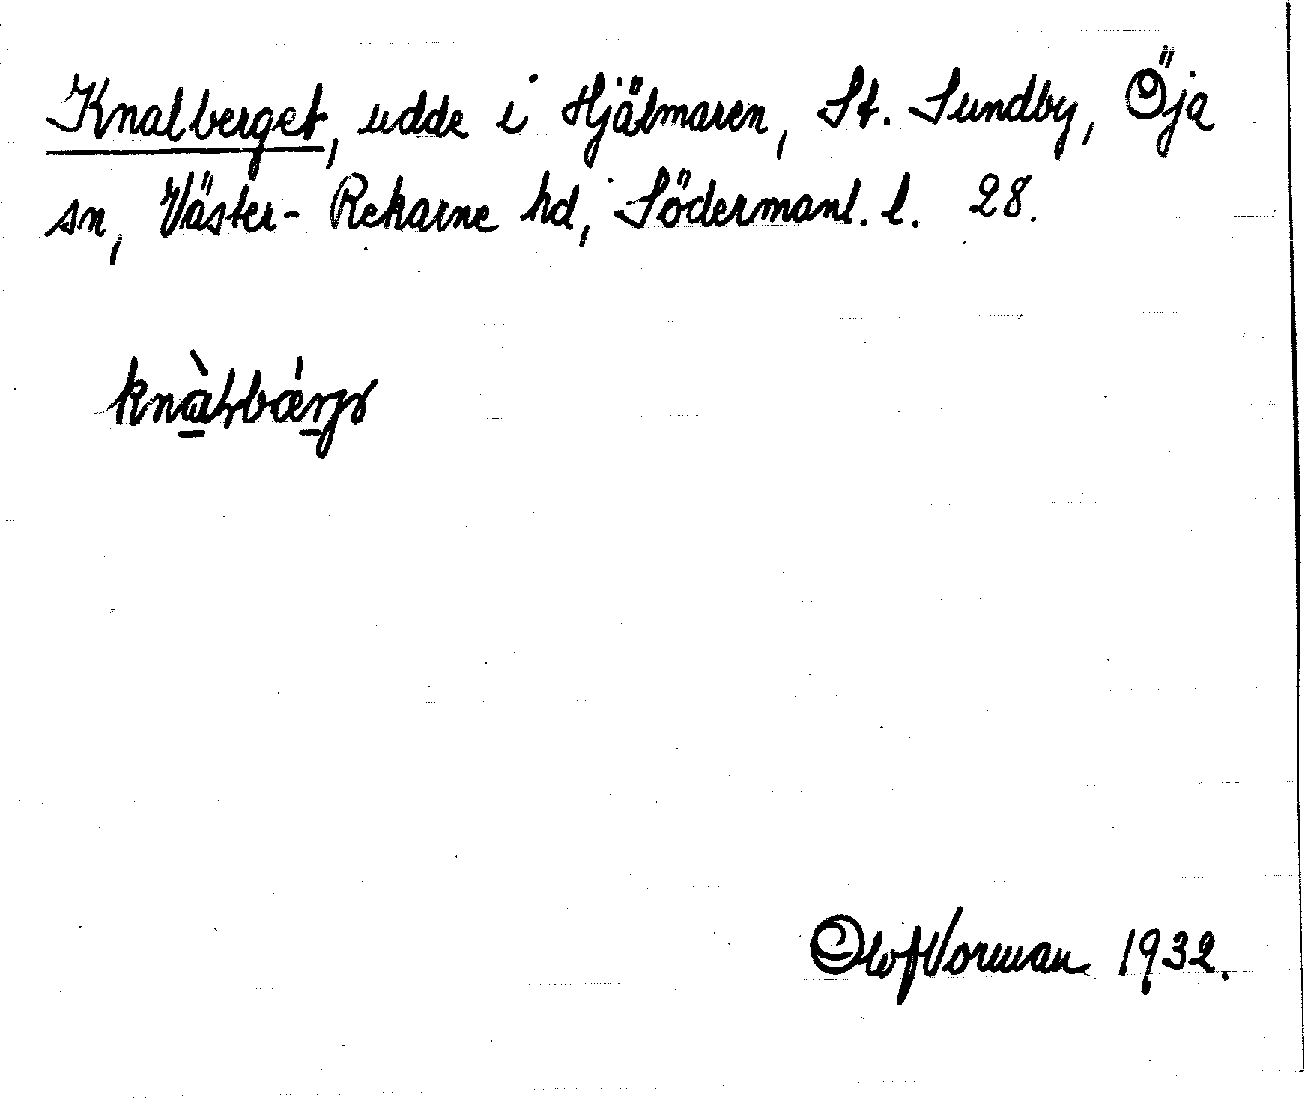 Knalberget, udde i Hjälmaren, St. Sundby, Öja
sn, Väster-Rekarne hd, Södermanl. l. 28.
Olof Vorman 1932.